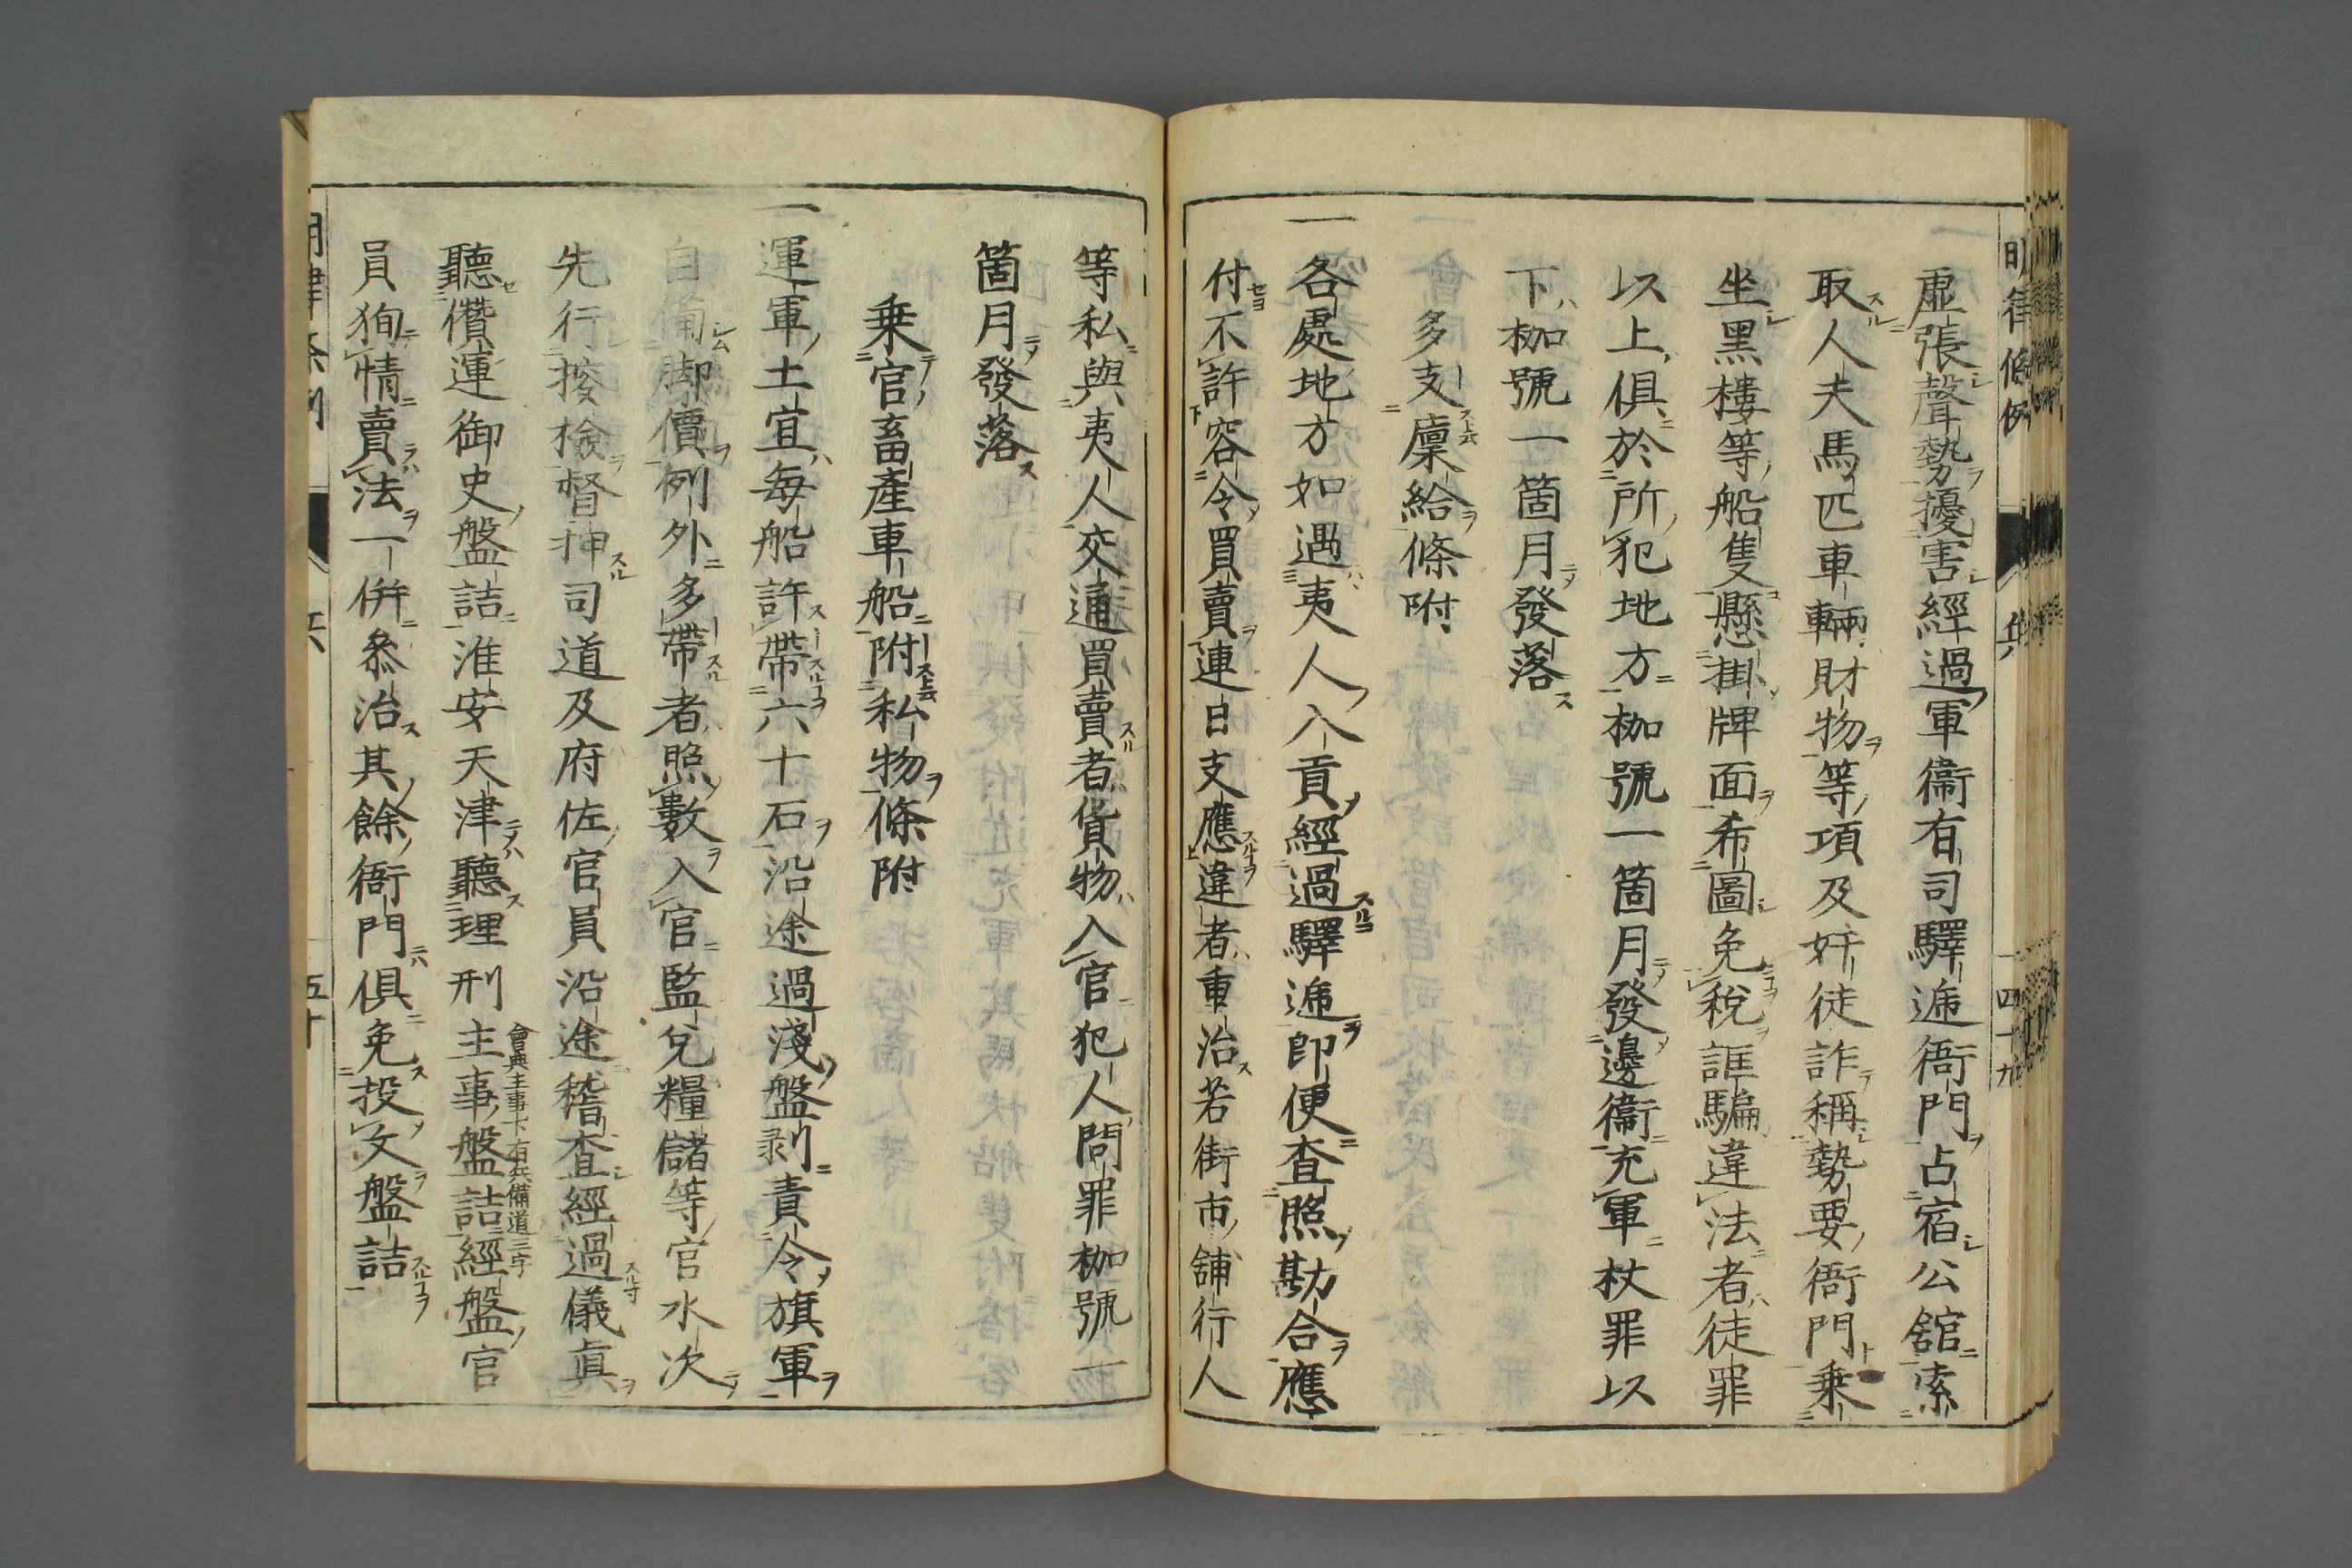 虚張聲勢擾害經過軍衞有司驛遞衙門占宿公舘索
取人夫馬匹車輛財物等項及奸徒詐稱勢要衙門乗
坐黑樓等船隻懸掛牌面希圖免稅誆騙違法者徒罪
以上俱於所犯地方枷號一箇月發邊衞充軍杖罪以
下枷號一箇月發落
多支廪給條附
一各處地方如遇夷人入貢經過驛遞卽便査照勘合應
付不許容令買賣連日支應違者重治若街市舖行人
等私與夷人交通買賣者貨物入官犯人問罪枷號一
箇月發落
乗官畜產車船附私物條附
一運軍土宜每船許帶六十石沿途過淺盤剥責令旗軍
自備脚價例外多帶者照數入官監兌糧儲等官水次
先行搜檢督押司道及府佐官員沿途稽査經過儀眞
聽儹運御史盤詰淮安天津聽理刑主事盤詰經盤官
會典主事下有兵備道三字
員狥情賣法一併叅治其餘衙門俱免投文盤詰
明律條例 兵 四十九
五十